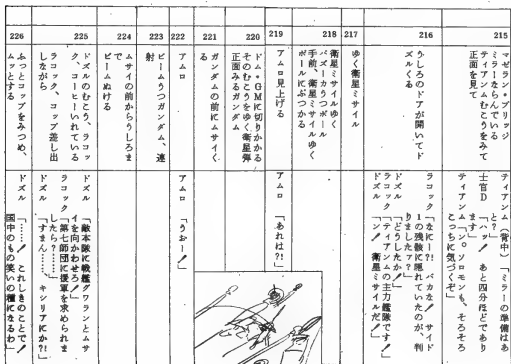 215
マゼラン・ブリッジ
ミラーならんでいる
ティアンムむこうをみて
正面を見て
ティアンム（背中）「ミラーの準備はあと?」
士官D「ハッ! あと四分ほどであります」
ティアンム「ン。ソロモンも、そろそろ
こっちに気づくぞ」
216
うしろのドアが開いてド
ズルくる
ラコック「なにー?! バカな! サイド
1の残骸に隠れていたのが、判
りましたァ?」
ドズル「どうしたか!」
ラコック「ティアンムの主力艦隊です!」
ドズル「ン! 衛星ミサイルだ!」
217
ゆく衛星ミサイル
218
衛星ミサイルゆく
バズーカうつボール
手前、衛星ミサイルゆく
ボールにぶつかる
219
アムロ見上げる
アムロ「あれは?!」
220
ドム・GMに切りかかる
そのむこうをゆく衛星弾
正面みるガンダム
221
ガンダムの前にムサイく
る
222
アムロ
アムロ「うおー!」
223
ビームうつガンダム、連
射
224
ムサイの前からうしろま
で
ビームぬける
225
ドズルのむこう、ラコッ
ク、コーヒーいれている
ラコック、コップ差し出
しながら
ドズル「敵本隊に戦艦グワランとムサ
イを向かわせろ!」
ラコック「第七師団に援軍を求められま
したら?……」
ドズル「すまん……、キシリアにか?!
226
ふっとコップをみつめ、
ムッとする
ドズル「……! これしきのことで!
国中のもの笑いの種になるわ」